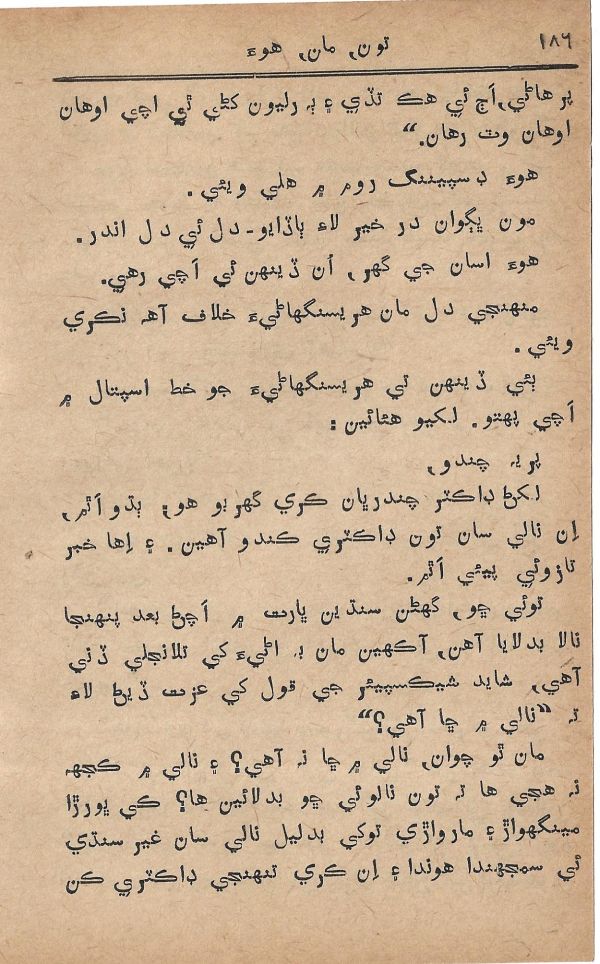 ١٨٦
تون، مان، هوءَ
پر هاڻي، اَڄ ئي هڪ تڏي ۽ ٻہ رليون کڻي ٿي اچي اوهان
اوهان وٽ رهان.“
هوءَ ڊسپيننگ روم ۾ هلي ويئي.
مون ڀڳوان در خير لاءِ ٻاڏايو- دل ئي دل اندر.
هوءَ اسان جي گهر، اُن ڏينهن ئي اَچي رهي.
منهنجي دل مان هريسنگهاڻيءَ خلاف آهہ نڪري
ويئي.
ٻئي ڏينهن تي هريسنگهاڻيءَ جو خط اسپتال ۾
اَچي پهتو. لکيو هئائين:
پريہ چندو،
لکڻ ڊاڪٽر چندريان ڪري گهربو هو؛ ٻڌو اَٿم،
اِن نالي سان تون ڊاڪٽري ڪندو آهين. ۽ اِها خبر
تازوئي پيئي اَٿم.
توئي ڇو، گهڻن سنڌين ڀارت ۾ اَچڻ بعد پنهنجا
نالا بدلايا آهن، آکهين مان بہ اڻيءَ کي تلانجلي ڏني
آهي، شايد شيڪسپيئر جي قول کي عزت ڏيڻ لاءِ
تہ ”نالي ۾ ڇا آهي؟“
مان ٿو چوان، نالي ۾ ڇا نہ آهي؟ ۽ نالي ۾ ڪجهہ
نہ هجي ها تہ تون نالوئي ڇو بدلائين ها؟ ڪي ڀورڙا
مينگهواڙ ۽ مارواڙي توکي بدليل نالي سان غير سنڌي
ئي سمجهندا هوندا ۽ اِن ڪري تنهنجي ڊاڪٽري ڪن